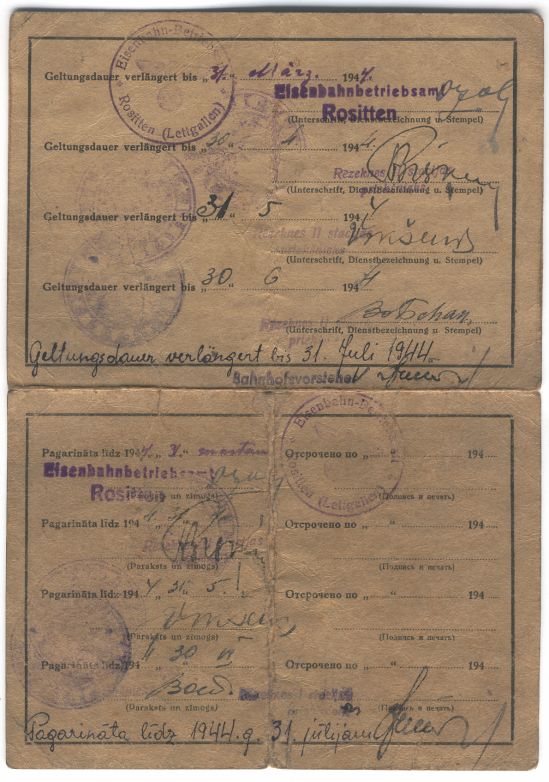 Geltungsdauer verlängert bis „31.“ März. 1944.
Eisenbahn-Betriebsamt
Rositten (Lettgallen)
Eisenbahnbetriebsamt
Rositten
(Unterschrift, Dienstbezeichnung u. Stempel)
Geltungsdauer verlängert bis „30“ 4 1944.
Rezeknes
(Unterschrift, Dienstbezeichnung u. Stempel)
Geltungsdauer verlängert bis „31“ 5 1944
Rezeknes II
(Unterschrift, Dienstbezeichnung u. Stempel)
Geltungsdauer verlängert bis „30“ 6 1944
Rezeknes II
(Unterschrift, Dienstbezeichnung u. Stempel)
Geltungsdauer verlängert bis 31. Juli 1944.
Bahnhofsvorsteher
Pagarināta līdz 194
Eisenbahnbetriebsamt
Rositten
(Paraksts un zīmogs)
Pagarināta līdz 194
(Paraksts un zīmogs)
Pagarināta līdz 1944 „31“ 5.
(Paraksts un zīmogs)
Pagarināta līdz 194 30 VI
(Paraksts un zīmogs)
Eisenbahn-Betriebsamt
Rositten (Lettgallen)
Отсрочено по „ “ 194
Отсрочено по „ “ 194
(Подпись и печать)
Отсрочено по „ “ 194
(Подпись и печать)
Отсрочено по „ “ 194
(Подпись и печать)
Pagarināta līdz 1944.g. 31. jūlijam